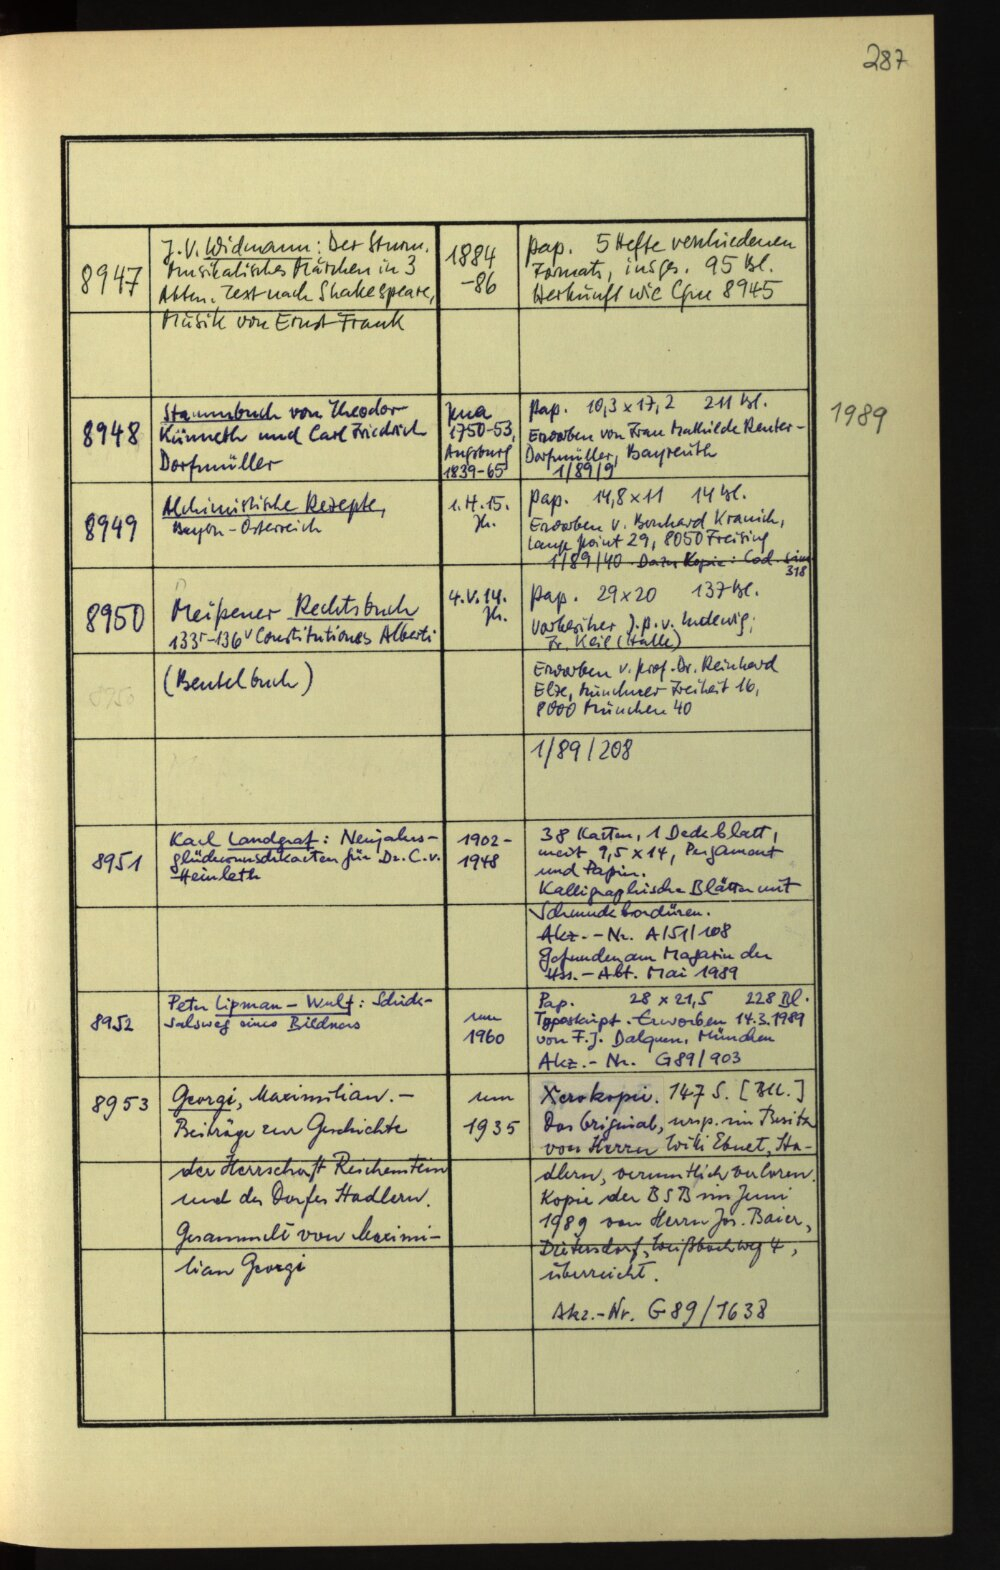 287
8947
J. V. Widmann: Der Sturm.
Musikalisches Märchen in 3
Abten. Text nach Shakespeare,
Musik von Ernst Frank
1884
-86
Pap. 5 Hefte verschiedenen
Formats, insges. 95 Bl.
Herkunft wie Cgm 8945
8948
Stammbuch von Theodor
Künneth und Carl Friedrich
Dorfmüller
Jena
1750-53,
Augsburg
1839-65
Pap. 10,3 x 17,2 211 Bl.
Erworben von Frau Mathilde Reuter-
Dorfmüller, Bayreuth
1/89/9
1989
8949
Alchimistische Rezepte,
Bayon-Österreich
1. H. 15.
Jh.
Pap. 14,8 x 11 14 Bl.
Erworben v. Bernhard Kranich,
Lange Point 29, 8050 Freising
1/89/40 Dazu Kopie: Cod. sim
318
8950
Meißener Rechtsbuch
133r-136v Constitutiones Alberti
(Beutelbuch)
4. V. 14.
Jh.
Pap. 29 x 20 137 Bl.
Vorbesitzer J. P. v. Ludewig;
Fr. Keil (Halle)
Erworben v. Prof. Dr. Reinhard
Elze, Münchner Freiheit 16,
8000 München 40
8950
1/89/208
8951
Karl Landgraf: Neujahrs-
glückwunschkarten für Dr. C. v.
Heinleth
1902-
1948
38 Karten, 1 Deckblatt,
meist 9,5 x 14, Pergament
und Papier.
Kalligraphische Blätter mit
Schmuckbordüren.
Akz.-Nr. A/51/108
Gefunden am Magazin der
Hss.-Abt. Mai 1989
8952
Peter Lipman-Wulf: Schick-
salsweg eines Bildners
um
1960
Pap. 28 x 21,5 228 Bl.
Typoskript. Erworben 14.3.1989
von F. J. Dalquen, München
Akz.-Nr. G89/903
8953
Georgi, Maximilian. -
Beiträge zur Geschichte
der Herrschaft Reichenstein
und des Dorfes Stadlern.
Gesammelt von Maximi-
lian Georgi
um
1935
Xerokopie. 147 S. [Bll.]
Das Original, ursp. im Besitz
von Herrn Willi Ebnet, Sta-
dlern, vermutlich verloren.
Kopie der BSB im Juni
1989 von Herrn Jos. Baier,
Dietersdorf, Weißbachweg 4,
überreicht.
Akz.-Nr. G89/1638